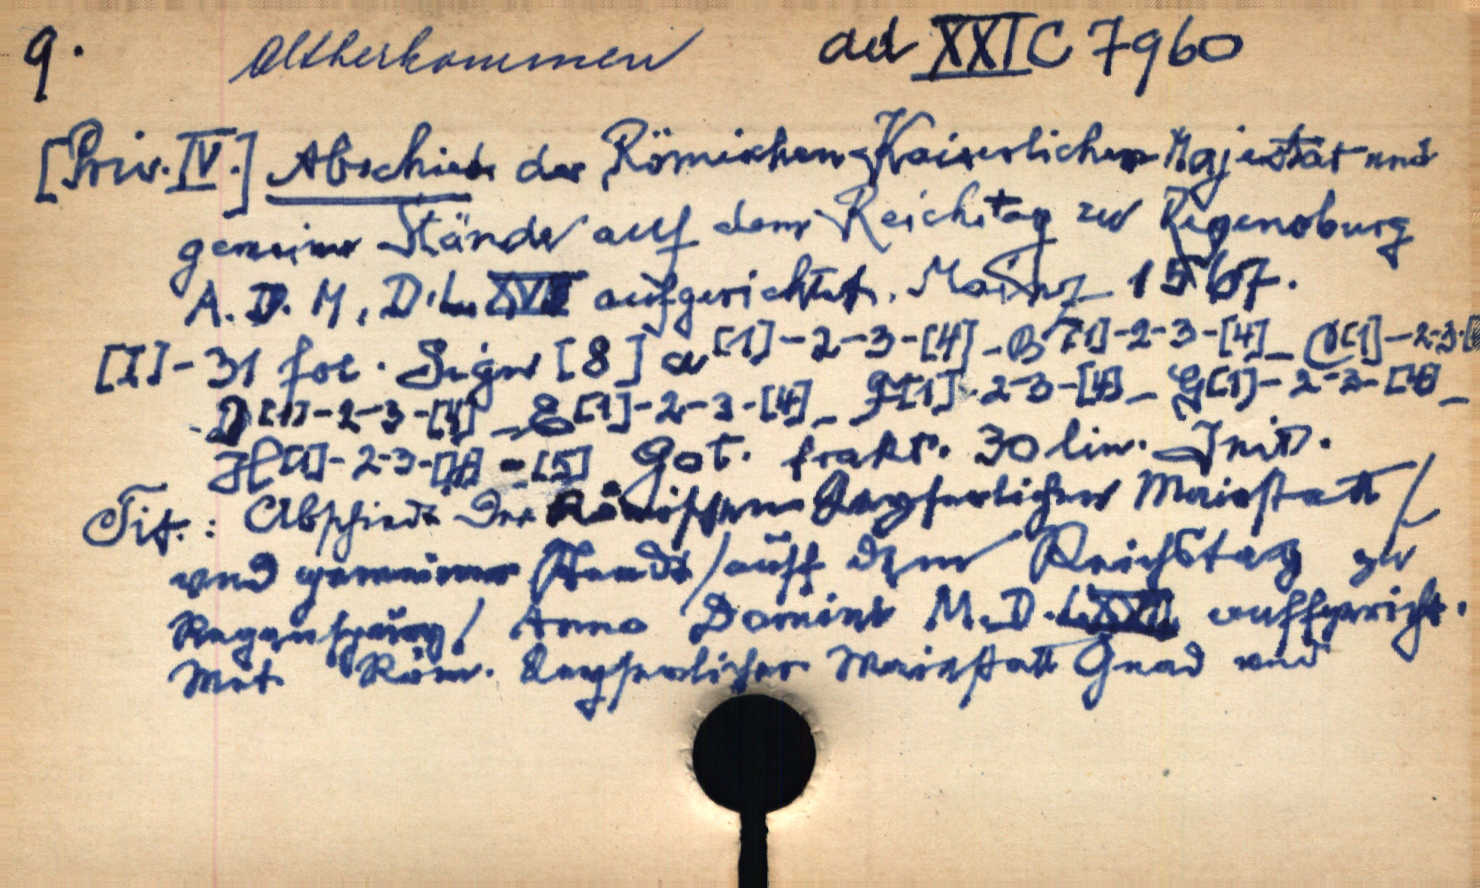 9. Altherkommen ad XXI C 7960
[Priv. IV.] Abschied der Römischen Kaiserlichen Majestät und
gemeiner Stände auf dem Reichstag zu Regensburg
A. D. M. D. L. XVII aufgerichtet. Mainz 1567.
[I]-31 fol. Sign [8] a [1]-2-3-[4]-B [1]-2-3-[4]-C [1]-2-3-
D [1]-2-3-[4]-E [1]-2-3-[4]-F [1]-2-3-[4]-G [1]-2-3-[4]-
H [1]-2-3-[4]-[5] Got. frakt. 30 lin. Init.
Tit.: Abschiedt Der Römischen Keyserlichen Maiestatt /
und gemeiner Stendt / auff dem Reichstag zu
Regenspurg / Anno Domini M.D.LXVII auffgericht.
Mit Röm. Keyserlicher Maiestatt Gnad und